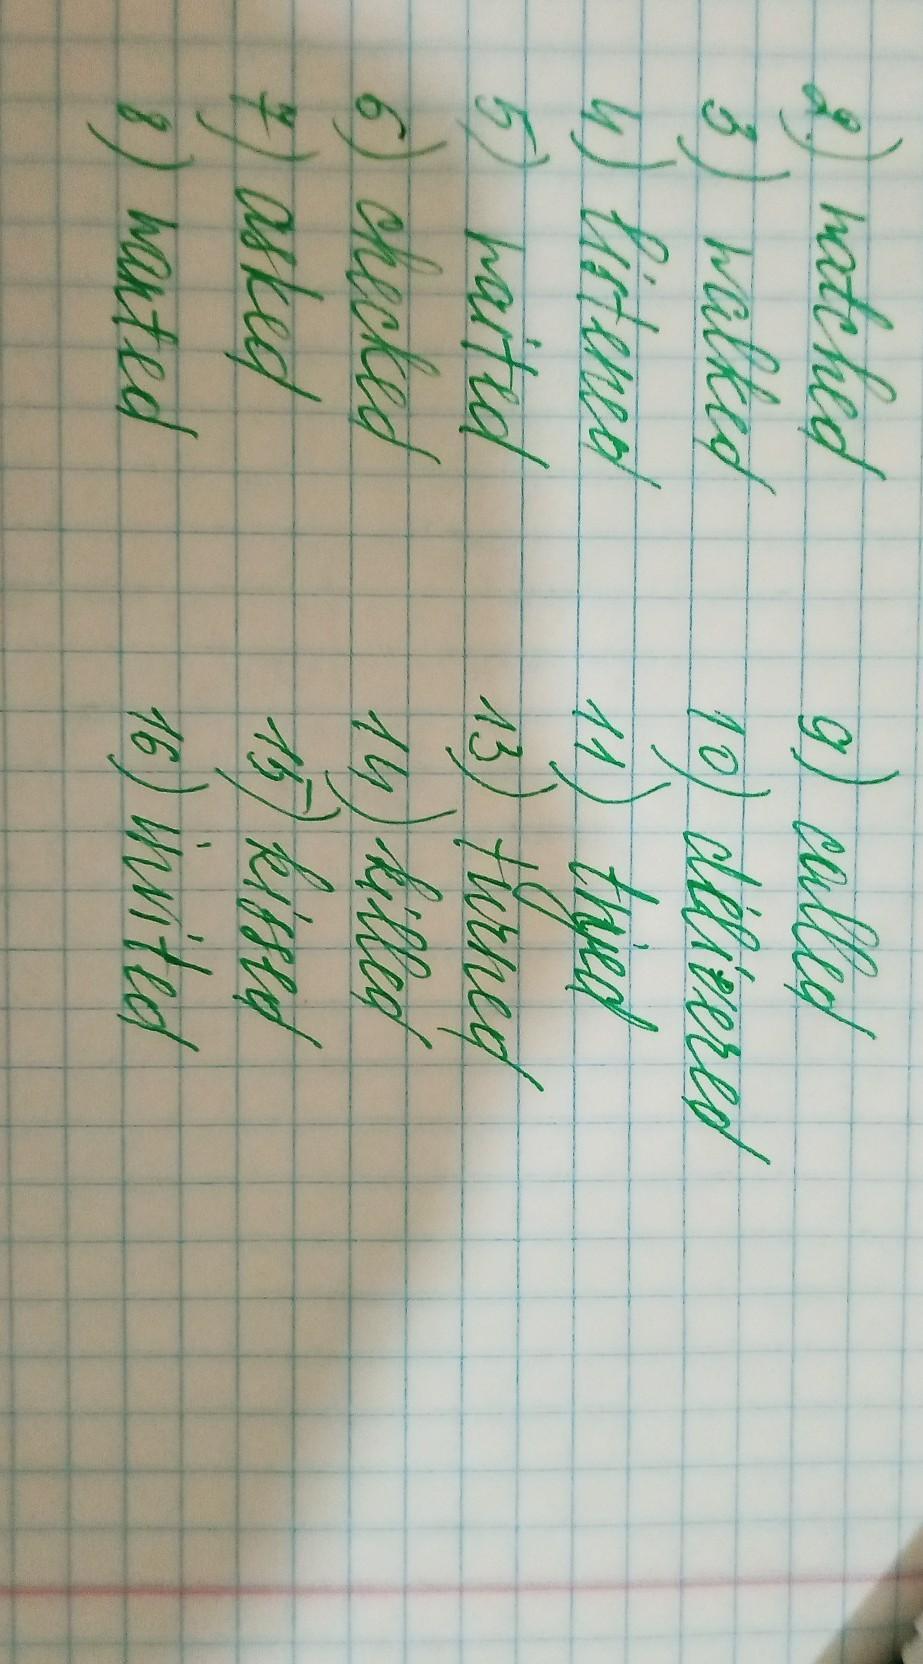 2) watched
3) walked
4) listened
5) waited
6) checked
7) asked
8) wanted
9) called
10) delivered
11) tryed
13) turned
14) killed
15) kissed
16) invited